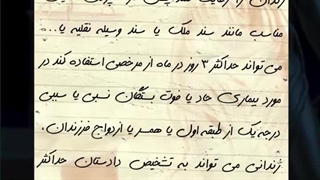 زندان را رعایت
مناسب مانند سند ملک یا سند وسیله نقلیه یا...
می تواند حداکثر ۳ روز در ماه از مرخصی استفاده کند در
مورد بیماری حاد یا فوت بستگان نسبی یا سببی
درجه یک از طبقه اول یا همسر یا ازدواج فرزندان،
زندانی می تواند به تشخیص دادستان حداکثر